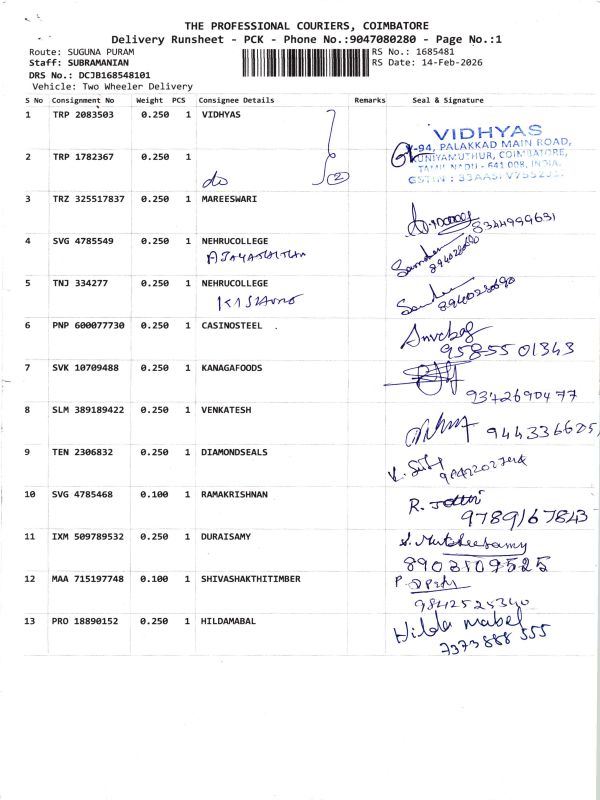 THE PROFESSIONAL COURIERS, COIMBATORE
Delivery Runsheet - PCK - Phone No.:9047080280 - Page No.:1
Route: SUGUNA PURAM RS No.: 1685481
Staff: SUBRAMANIAN RS Date: 14-Feb-2026
DRS No.: DCJB168548101
Vehicle: Two Wheeler Delivery
S No Consignment No Weight PCS Consignee Details Remarks Seal & Signature
1 TRP 2083503 0.250 1 VIDHYAS
VIDHYAS
K-94, PALAKKAD MAIN ROAD,
KUNIYAMUTHUR, COIMBATORE,
TAMIL NADU - 641 008, INDIA.
GSTIN :
2 TRP 1782367 0.250 1
do 2
3 TRZ 325517837 0.250 1 MAREESWARI
8344999631
4 SVG 4785549 0.250 1 NEHRUCOLLEGE
5 TNJ 334277 0.250 1 NEHRUCOLLEGE
8940280690
6 PNP 600077730 0.250 1 CASINOSTEEL
9585501343
7 SVK 10709488 0.250 1 KANAGAFOODS
9342690477
8 SLM 389189422 0.250 1 VENKATESH
944336605
9 TEN 2306832 0.250 1 DIAMONDSEALS
10 SVG 4785468 0.100 1 RAMAKRISHNAN
R.
9789167843
11 IXM 509789532 0.250 1 DURAISAMY
S. Mutheesamy
8903109525
12 MAA 715197748 0.100 1 SHIVASHAKTHITIMBER
P.
9842525340
13 PRO 18890152 0.250 1 HILDAMABAL
Hilda mabel
7373888555